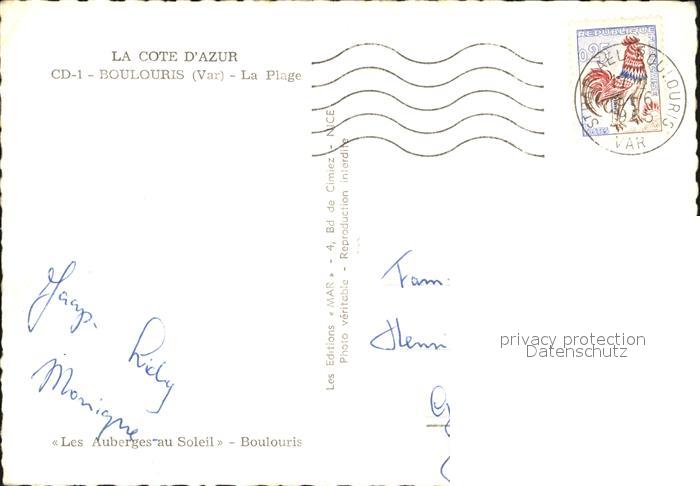 LA COTE D'AZUR
CD-1 - BOULOURIS (Var) - La Plage
REPUBLIQUE
0,25
BOULOURIS
VAR
Les Editions « MAR » - 4, Bd de Cimiez - NICE
Photo véritable - Reproduction interdite
Jaap.
Monique
Fam.
Henri
privacy protection
Datenschutz
«Les Auberges au Soleil» - Boulouris